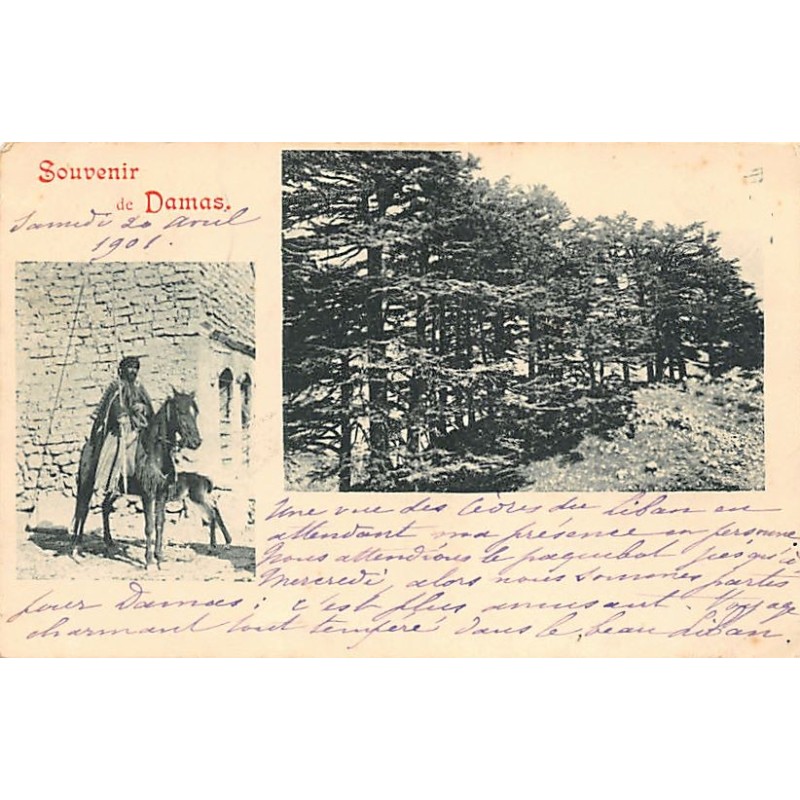 Souvenir
de Damas.
Samedi 20 Avril
1901.
Une vue des Cèdres du Liban en
attendant ma présence en personne
Nous attendions le paquebot jusqu'à
Mercredi, alors nous sommes parties
pour Damas ; c'est plus amusant. Voyage
charmant tout temperé dans le beau Liban.